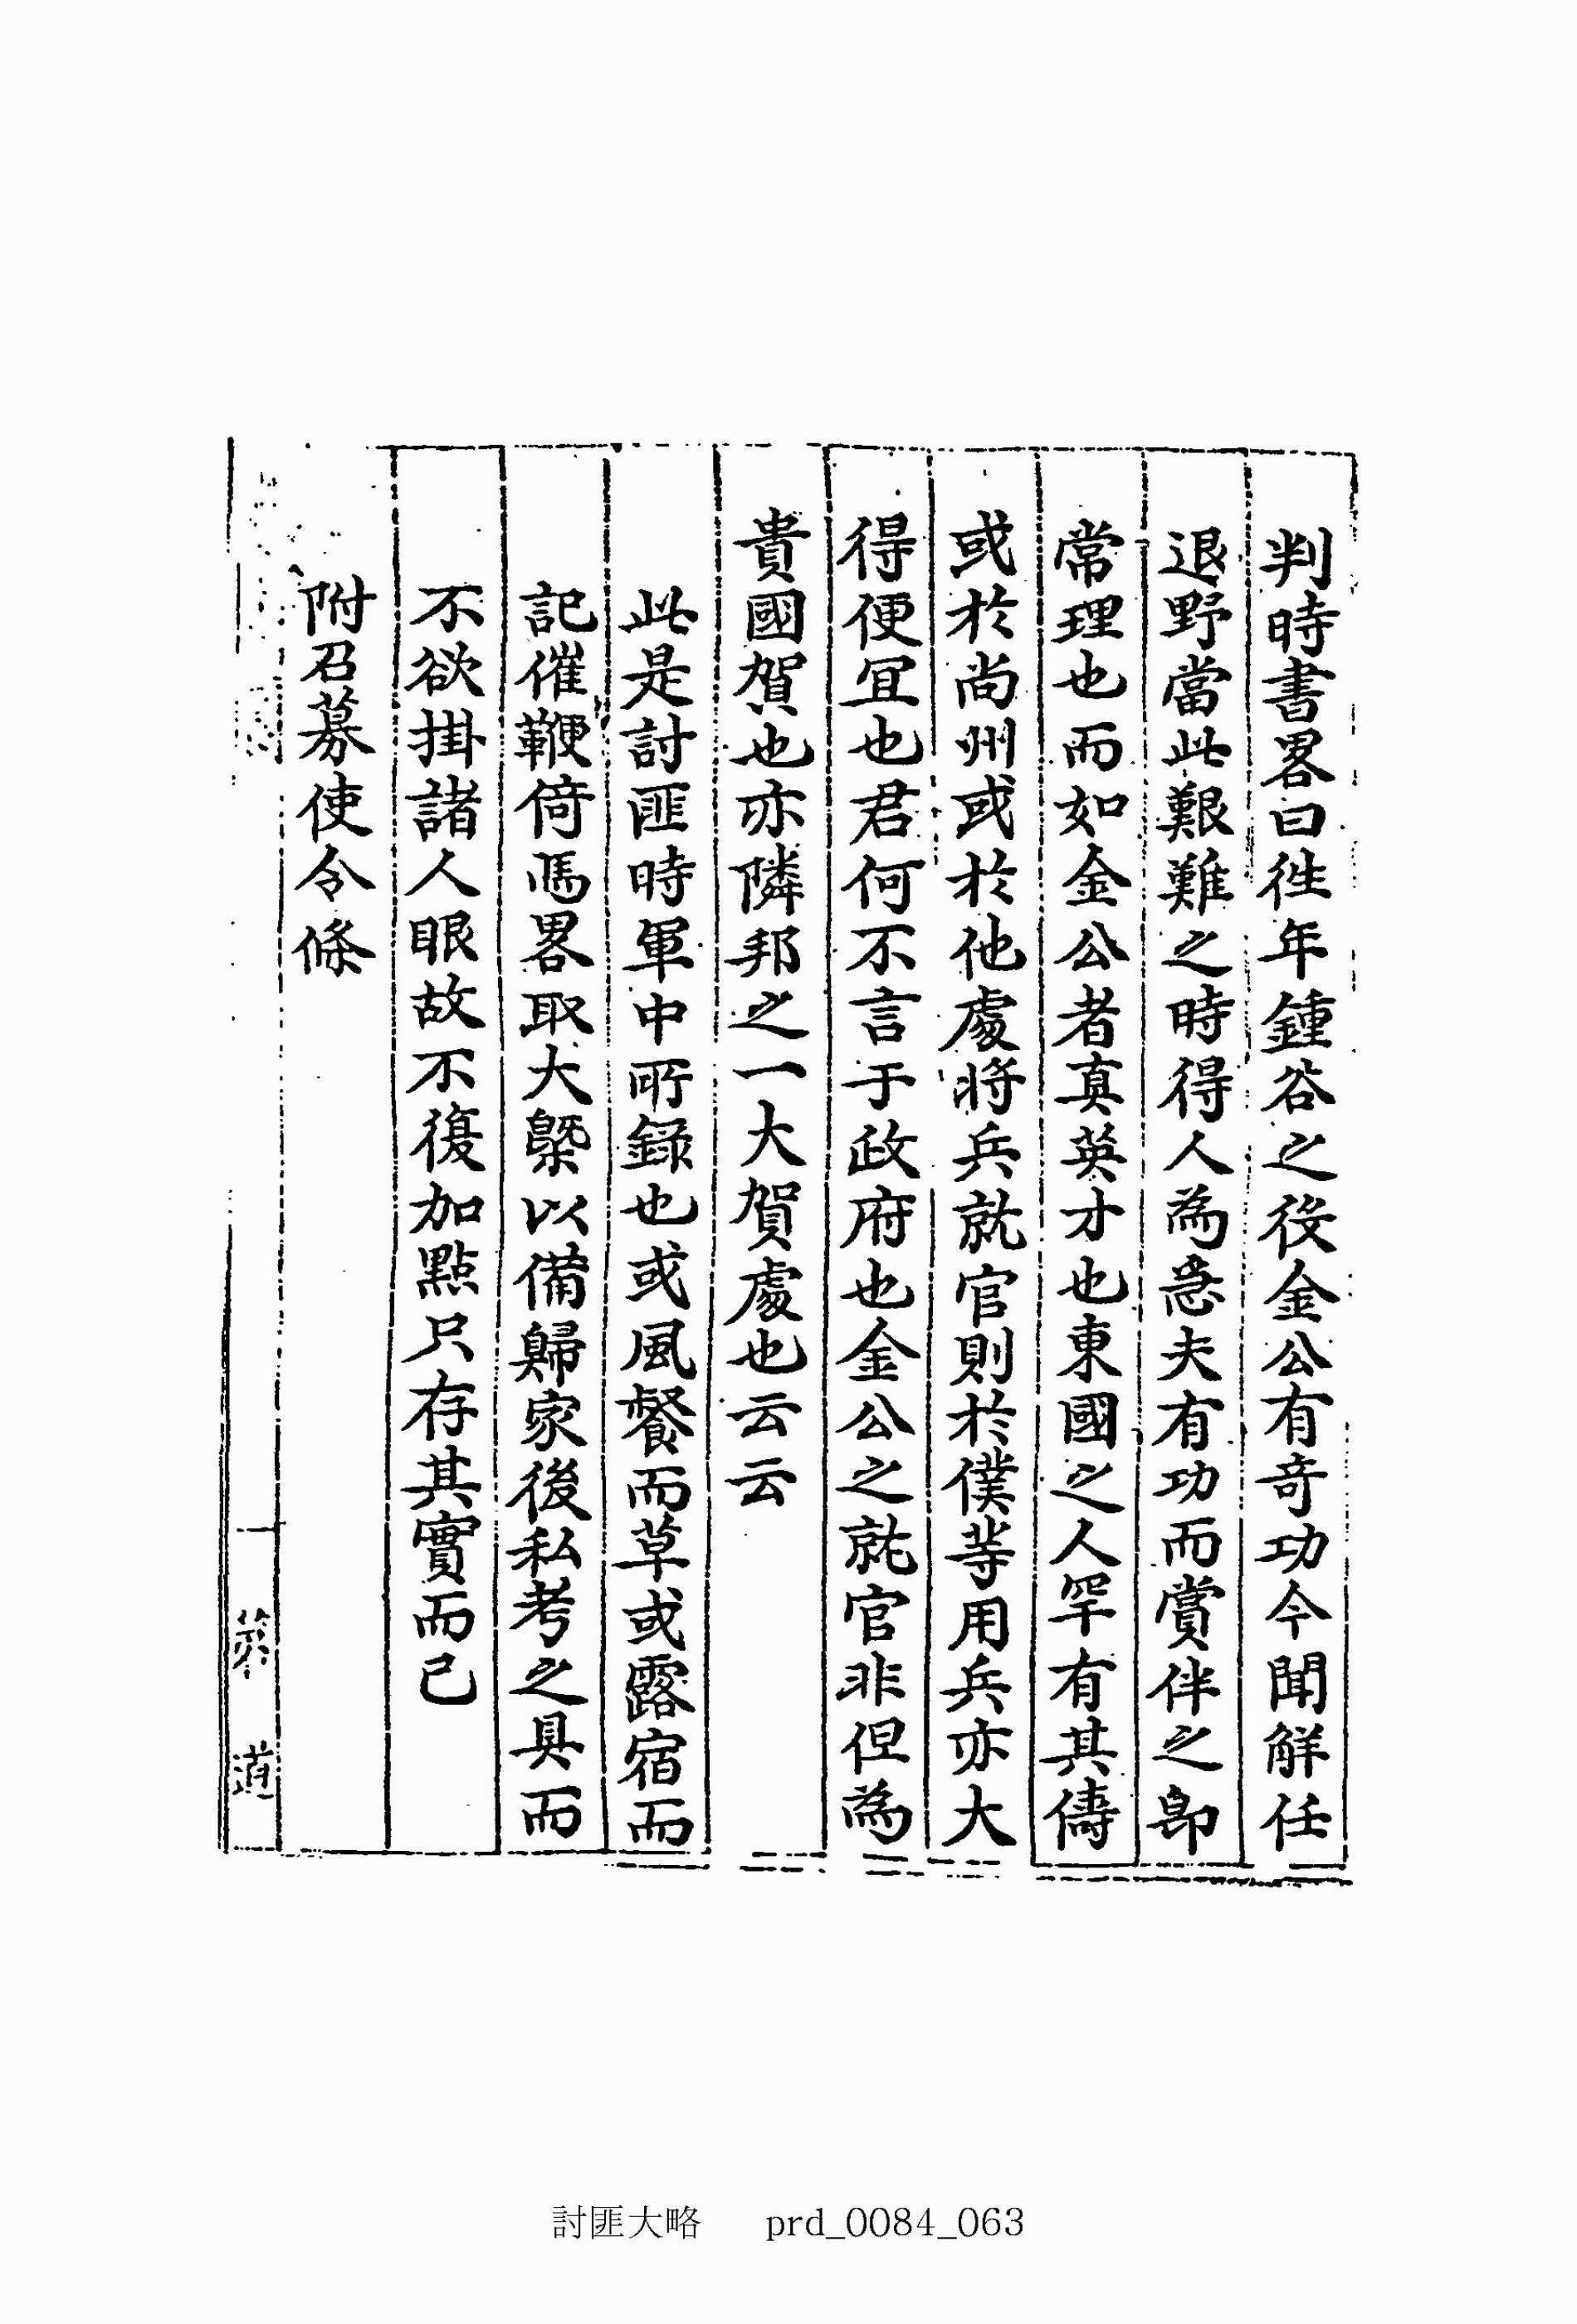 判時書畧曰徃年鍾谷之役金公有奇功今聞解任
退野當此艱難之時得人為急夫有功而賞伴之卽
常理也而如金公者真英才也東國之人罕有其儔
或於尙州或於他處將兵就官則於僕等用兵亦大
得便冝也君何不言于政府也金公之就官非但為
貴國賀也亦隣邦之一大賀處也云云
此是討匪時軍中所錄也或風餐而草或露宿而
記催鞭倚馬畧取大槩以備歸家後私考之具而
不欲掛諸人眼故不復加點只存其實而已
附召募使令條
討匪大略 prd_0084_063